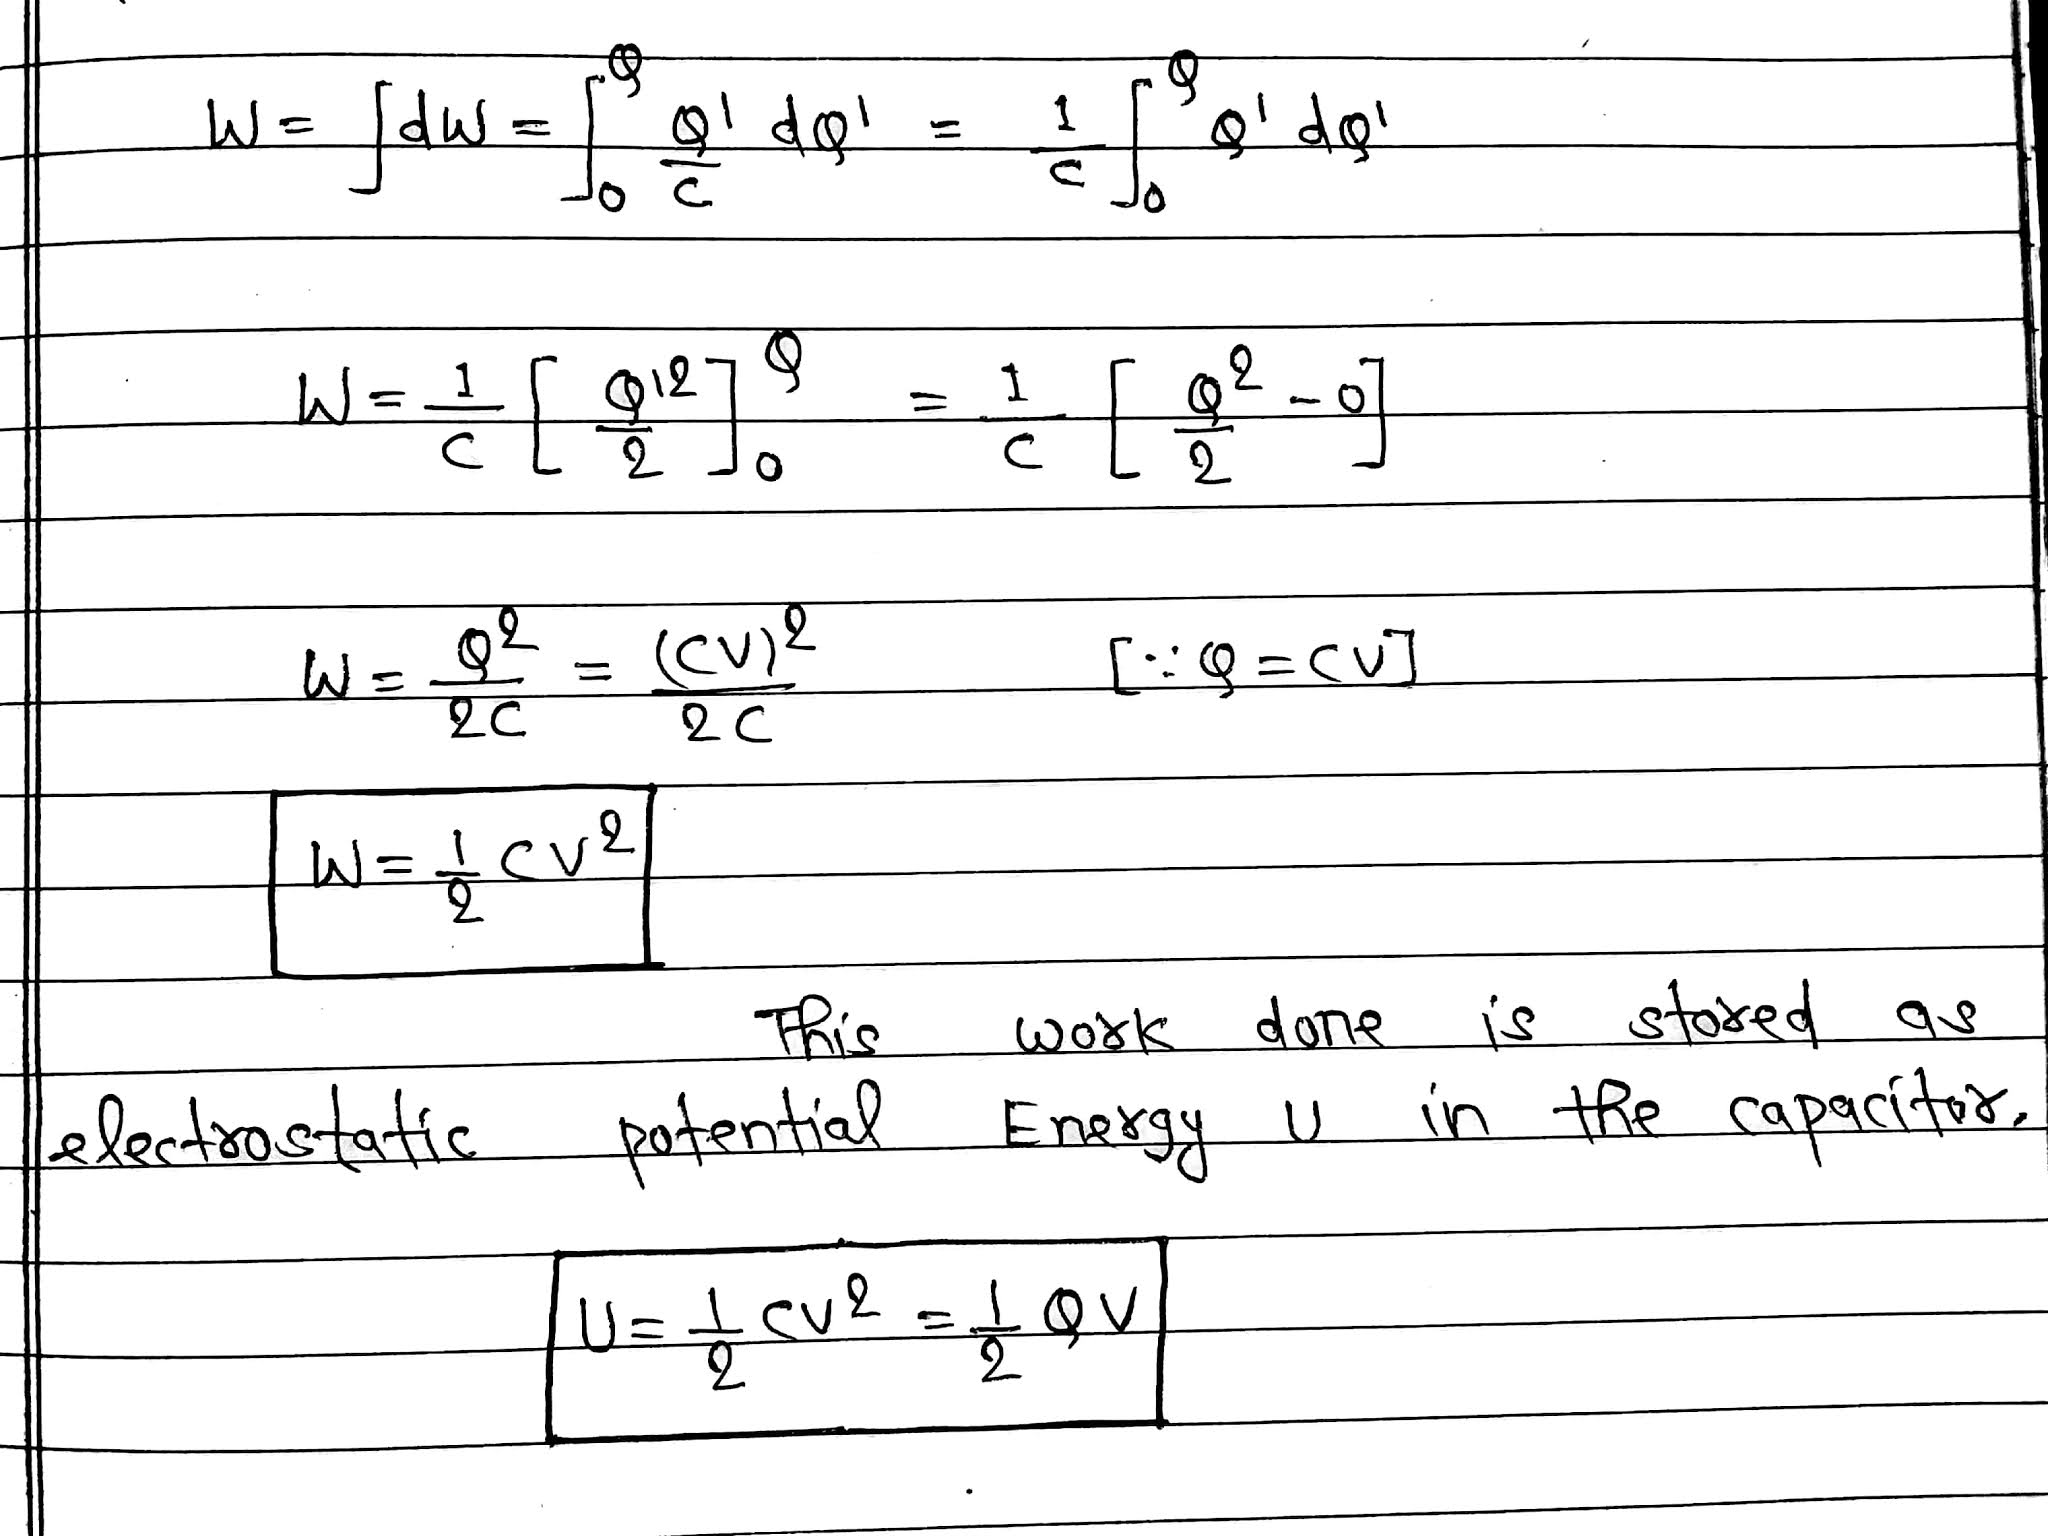 W = ∫dW = ∫₀^Q Q'/C dQ' = 1/C ∫₀^Q Q' dQ'
W = 1/C [Q'²/2]₀^Q = 1/C [Q²/2 - 0]
W = Q²/2C = (CV)²/2C [∵ Q = CV]
W = 1/2 CV²
This work done is stored as
electrostatic potential Energy U in the capacitor.
U = 1/2 CV² = 1/2 QV